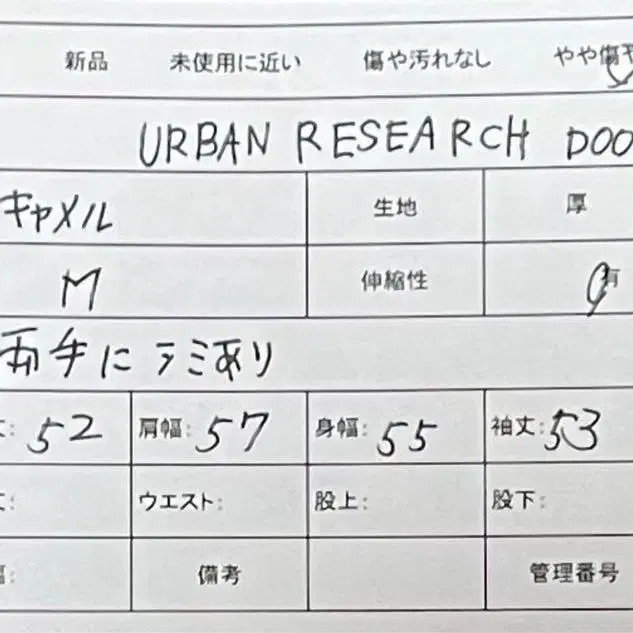 新品 未使用に近い 傷や汚れなし やや傷や
URBAN RESEARCH DOO
キャメル 生地 厚
M 伸縮性 有
両手にシミあり
丈: 52 肩幅: 57 身幅: 55 袖丈: 53
丈: ウエスト: 股上: 股下:
幅: 備考 管理番号